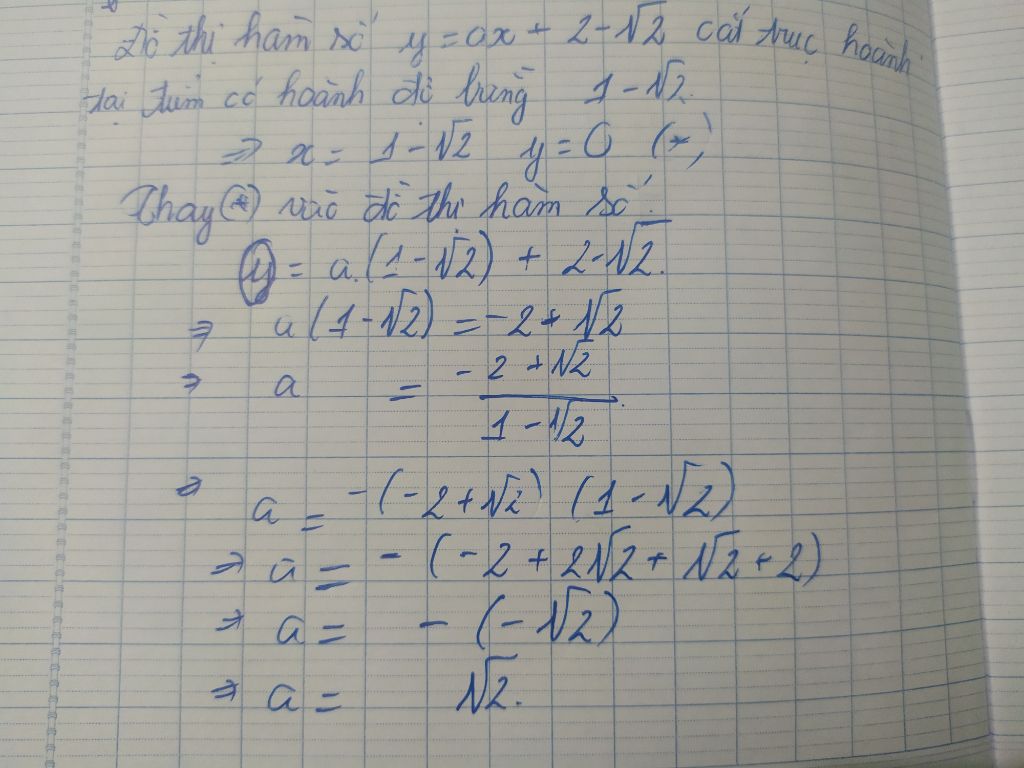 Đồ thị hàm số y = ax + 2 - √2 cắt trục hoành
tại điểm có hoành độ bằng 1 - √2.
⇒ x = 1 - √2 y = 0 (*)
Thay (*) vào đồ thị hàm số.
y = a.(1 - √2) + 2 - √2.
⇒ a(1 - √2) = -2 + √2
⇒ a = (-2 + √2) / (1 - √2)
⇒ a = -(-2 + √2) (1 - √2)
⇒ a = -(-2 + 2√2 + √2 + 2)
⇒ a = -(-√2)
⇒ a = √2.